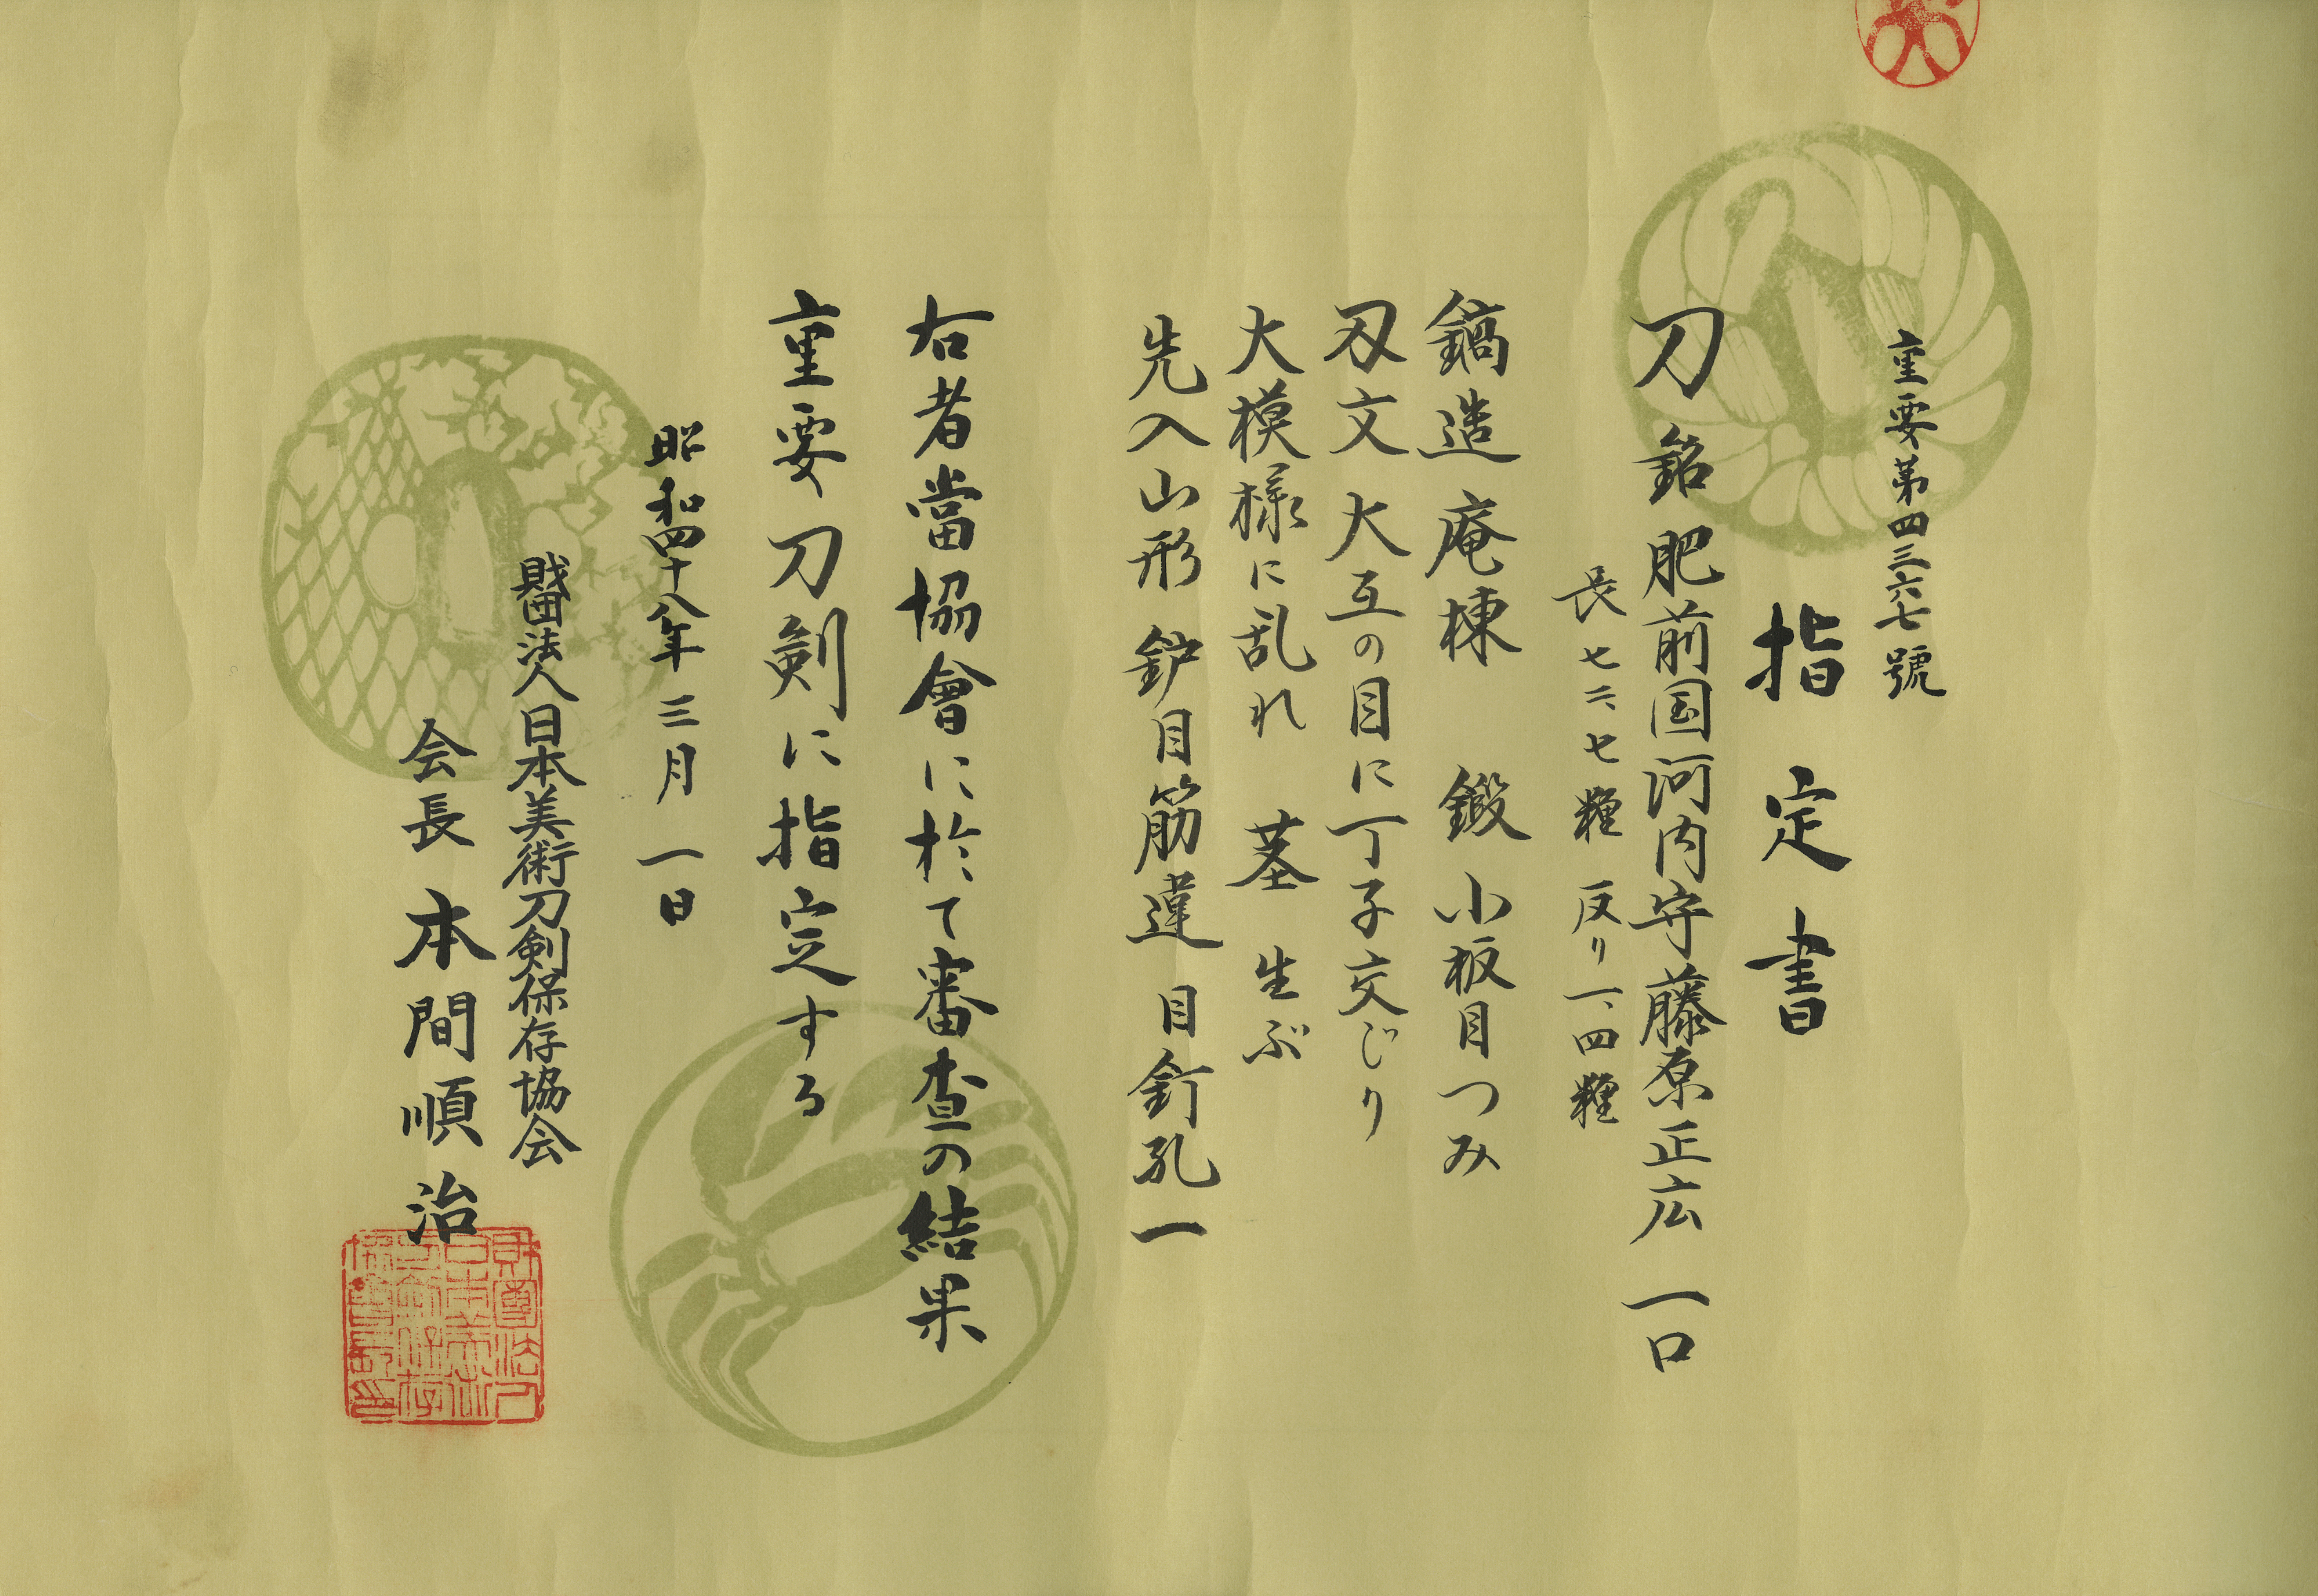 重要第四三六七號
指定書
刀 銘 肥前国河内守藤原正広 一口
長 七二、七糎 反り 一、四糎
鎬造 庵棟 鍛 小板目つみ
刃文 大互の目に丁子交じり
大模様に乱れ 茎 生ぶ
先入山形 鈩目筋違 目釘孔一
右者當協會に於て審査の結果
重要刀剣に指定する
昭和四十八年三月一日
財団法人日本美術刀剣保存協会
会長 本間順治